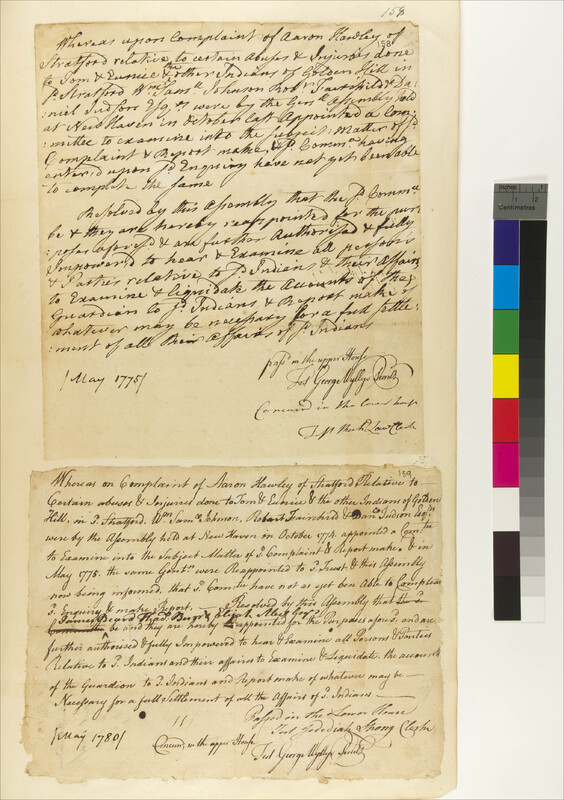 158
Whereas upon Complaint of Aaron Hawley of
158
Stratford relative to certain Abuses & Injuries done
to Tom & Eunice & other Indians of Golden Hill in
sd. Stratford Wm. Saml. Johnson Robt. Fairchild & Da=
niel Judson Esqrs. were by the Genll. Assembly held
at New Haven in October last Appointed a Com=
mittee to examine into the subject Matter of sd.
Complaint & Report make, & sd. Commee. having
enter'd upon sd. Enquiry have not yet been able
to compleat the same
Resolved by this Assembly that the sd. Commee.
be & they are hereby reappointed for the pur=
poses aforesd. & are further Authorised & fully
Impowered to hear & Examine all persons
& Parties relative to sd. Indians & their Affairs
to Examine & liquidate the Accounts of the
Guardian to sd. Indians & Report make of
whatever may be necessary for a full settle=
ment of all their Affairs of sd. Indians
/May 1775/
pass'd in the upper House
Test George Wyllys Secrety.
Concurred in the lower house
Test Richd. Law Clerk
159
Whereas on Complaint of Aaron Hawley of Stratford Relative to
Certain abuses & Injuries done to Tom & Eunice & the other Indians of Golden
Hill, in sd. Stratford. Wm. Saml. Johnson, Robert Fairchild & Danl. Judson Esqrs.
were by the Assembly held at New Haven in October 1774. appointed a Comtee
to Examine into the Subject Matter of sd. Complaint & Report make. & in
May 1775. the same Gentn. were Reappointed to sd. Trust & this Assembly
now being informed, that sd. Commee have not as yet ben Able to Compleat
sd. Enquiry & make Report. — Resolved by this Assembly that
James Beard Thad. Burr &
Committee be and they are hereby appointed for the purposes aforesd. and are
further authorised & fully Impowered to hear & Examine all Persons & Parties
Relative to sd. Indians and their affairs to Examine & Liquidate the accounts
of the Guardian to sd. Indians and Report make of whatever may be —
Necessary for a full Settlement of all the Affairs of sd. Indians —
Passed in the Lower House
Test Jedediah Strong Clerk
/May 1780/
Concurd. in the upper House
Test George Wyllys Secrety.
Inches
1
2
Centimetres